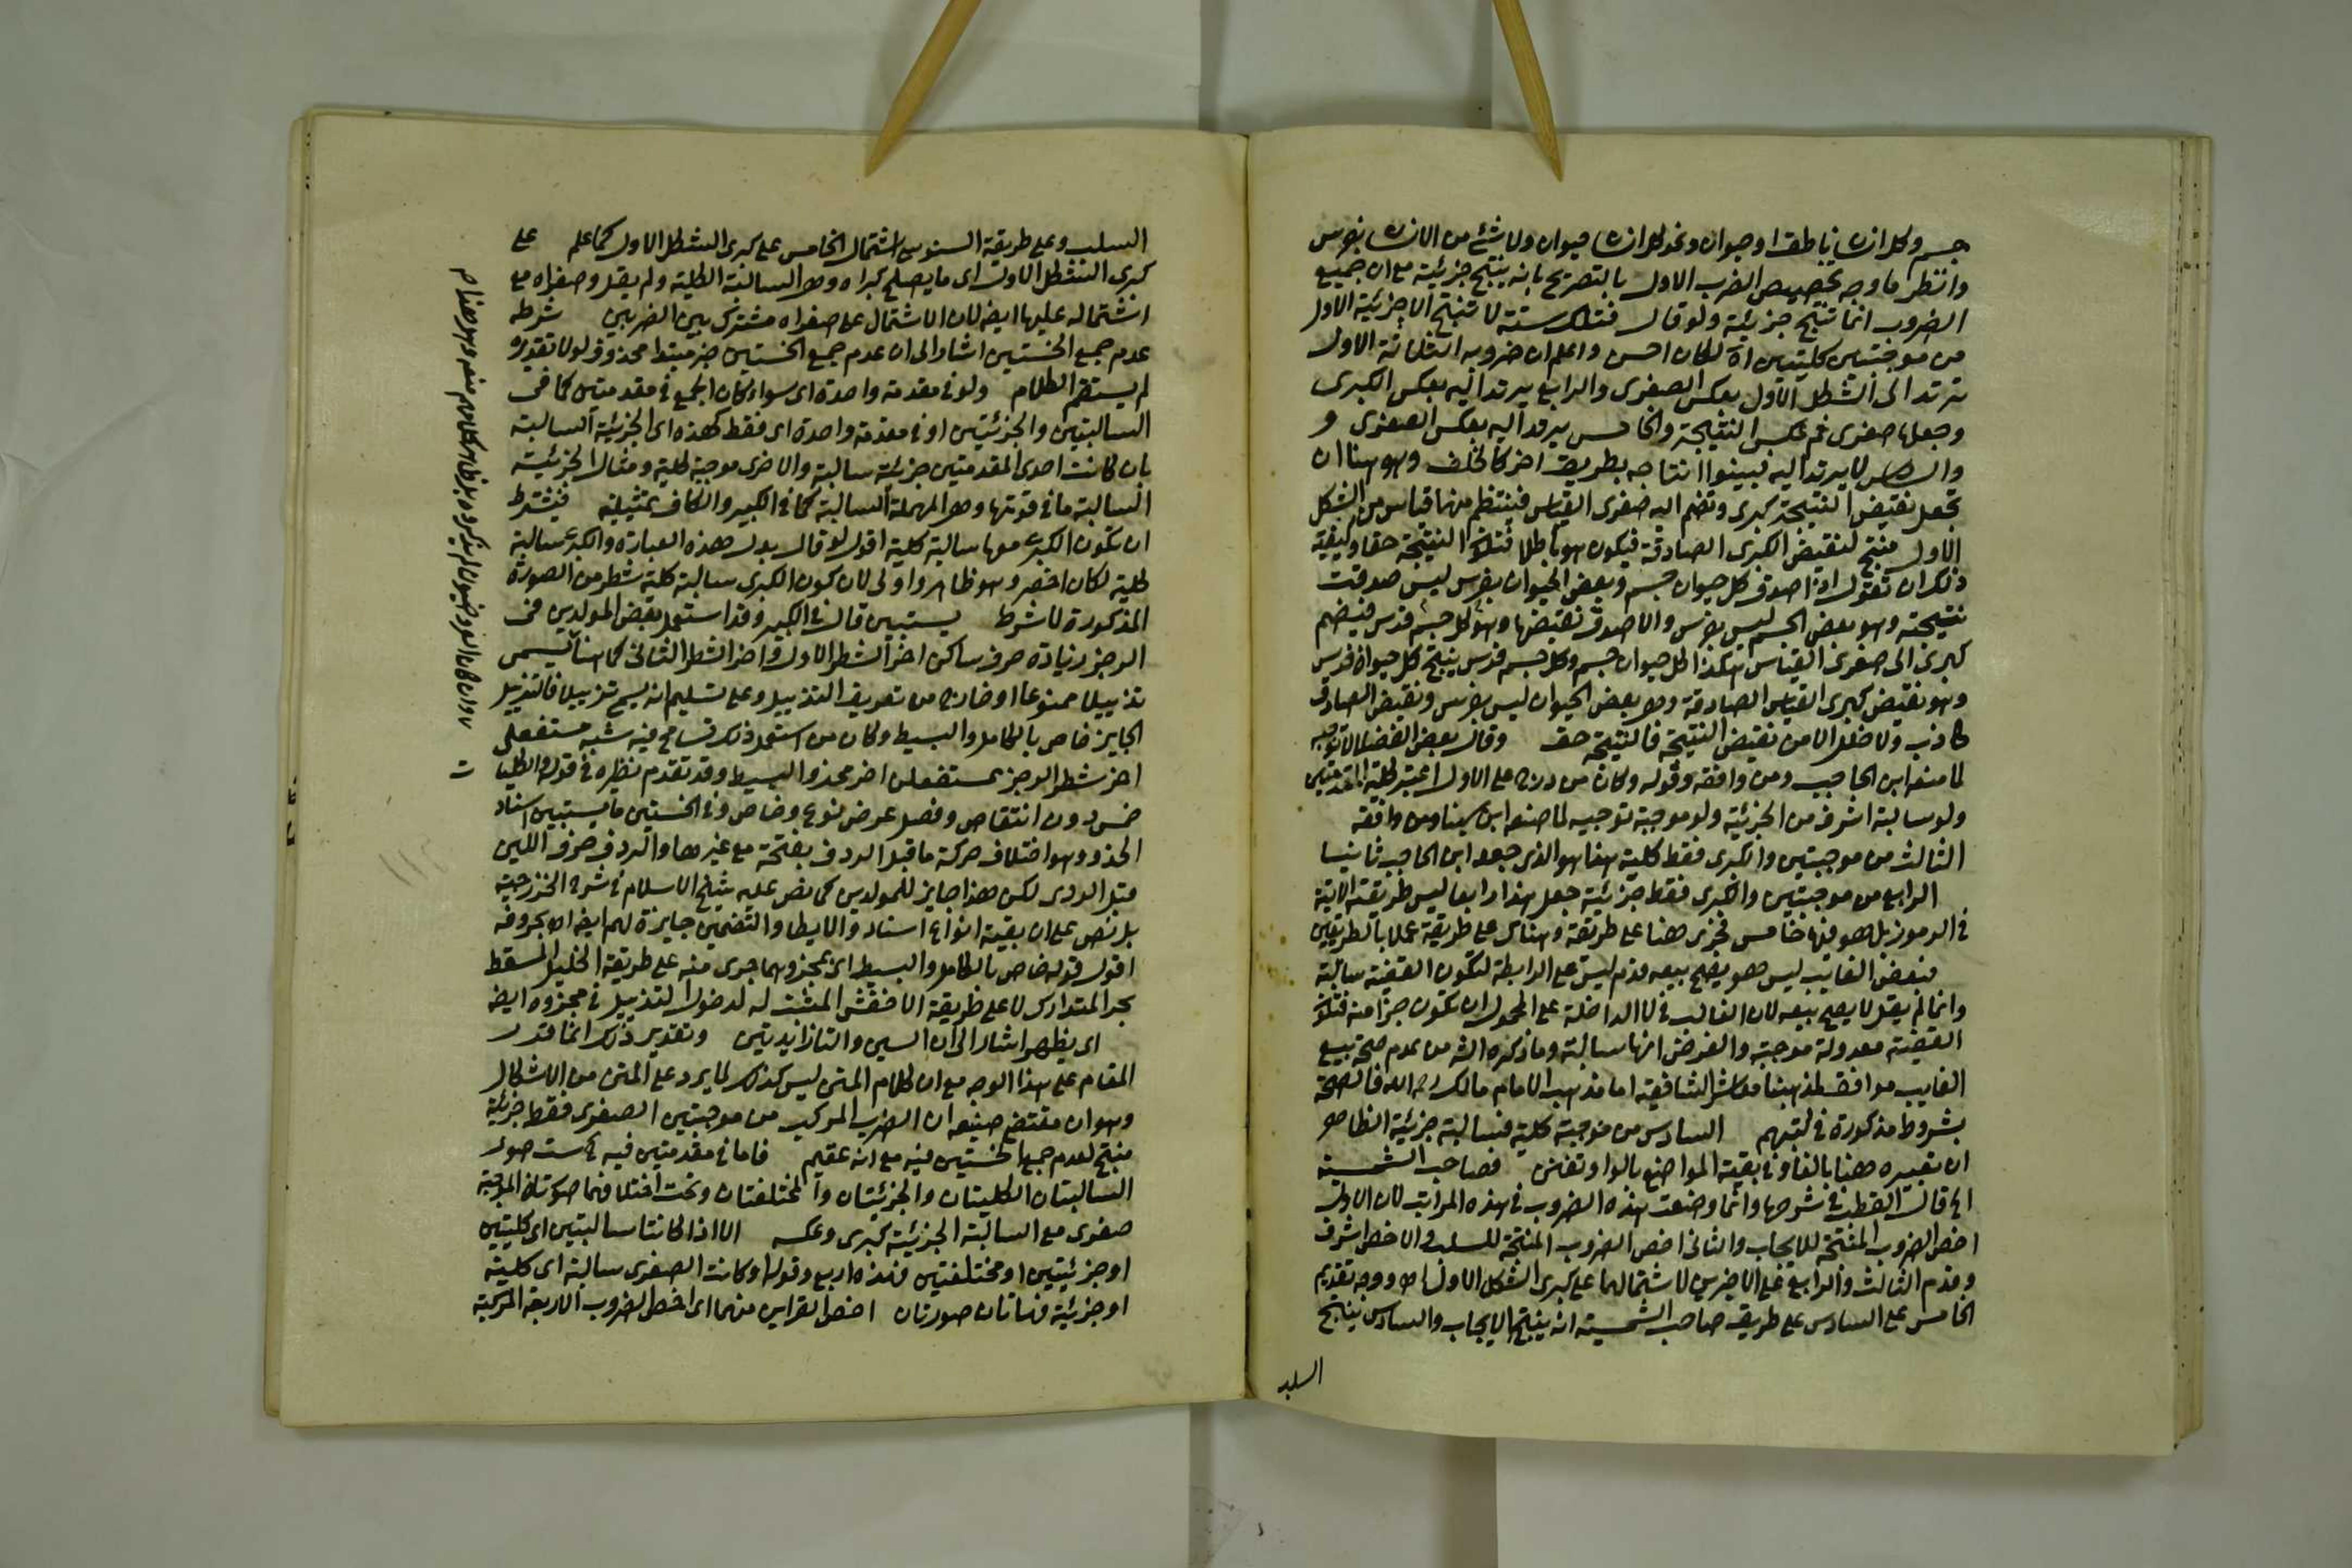 جسم وكل انسان ناطق او حيوان ونحو كل انسان حيوان ولا شئ من الانسان بفرس
وانظر ما وجه تخصيص الضرب الاول بالتصريح بانه ينتج جزئية مع ان جميع
الضروب انما تنتج جزئية ولو قال فتلك ستة لا تنتج الا جزئية الاول
من موجبتين كليتين اه لكان احسن واعلم ان ضروبه الثلاثة الاول
ترتد الى الشكل الاول بعكس الصغرى والرابع يرتد اليه بعكس الكبرى
وجعلها صغرى ثم عكس النتيجة والخامس يرتد اليه بعكس الصغرى و
والسادس لا يرتد اليه فبينوا انتاجه بطريق اخر كالخلف وهو هنا ان
تجعل نقيض النتيجة كبرى وتضم اليه صغرى القياس فينتظم منهما قياس من الشكل
الاول منتج لنقيض الكبرى الصادقة فيكون هو باطلا فتكون النتيجة حقا وكيفية
ذلك ان تقول اذا صدق كل حيوان جسم وبعض الحيوان بفرس ليس صدقت
نتيجته وهو بعض الجسم ليس بفرس والا صدق نقيضها وهو كل جسم فرس فيضم
كبرى الى صغرى القياس هكذا كل حيوان جسم وكل جسم فرس ينتج كل حيوان فرس
وهو نقيض كبرى القياس الصادقة وهى بعض الحيوان ليس بفرس ونقيض الصادق
كاذب ولا خلل الا من نقيض النتيجة فالنتيجة حق وقال بعض الفضلاء لا توجيه
لما صنعه ابن الحاجب ومن وافقه وقوله وكان من درج على الاول اعتبر كلية المقدمتين
ولو سالبة اشرف من الجزئية ولو موجبة توجيه لما صنعه ابن سينا ومن وافقه
الثالث من موجبتين والكبرى فقط كلية هذا هو الذى جعله ابن الحاجب ثانيا
الرابع من موجبتين والكبرى فقط جزئية جعل هذا رابعا ليس طريقته الاتية
فى الرموز بل هو فيها خامس فجرى هنا على طريقة وهناك على طريقة عملا بالطريقين
فبعض الغايب ليس هو يصح بيعه قدم ليس على الرابطة لتكون القضية سالبة
وانما لم يقل لا يصح بيعه لان الغالب فى لا الداخلة على المحمول ان تكون جزا منه فتكون
القضية معدولة موجبة والغرض انها سالبة وما ذكره الش من عدم صحة بيع
الغايب موافق لمذهبنا معاشر الشافعية اما مذهب الامام مالك رحمه الله فالصحة
بشروط مذكورة فى كتبهم السادس من موجبة كلية فسالبة جزئية الظاهر
ان تعبيره هنا بالفاء وفى بقية المواضع بالواو تفنن فصاحب الشمسية
اه قال القطب فى شرحها وانما وضعت هذه الضروب فى هذه المراتب لان الاول
اخص الضروب المنتجة للايجاب والثانى اخص الضروب المنتجة للسلب والاخص اشرف
وقدم الثالث والرابع على الاخيرين لاشتمالهما على كبرى الشكل الاول اه ووجه تقديم
الخامس على السادس على طريقة صاحب الشمسية انه ينتج الايجاب والسادس ينتج
السلب
السلب وعلى طريقة السنوسى اشتمال الخامس على كبرى الشكل الاول كما علم على
كبرى الشكل الاول اى ما يصلح كبراه وهو السالبة الكلية ولم يقل وصغراه مع
اشتماله عليها ايضا لان الاشتمال على صغراه مشترك بين الضربين شرطه
عدم جمع الخستين اشار الى ان عدم جمع الخستين خبر مبتدا محذوف لولا تقديره
لم يستقم الكلام ولو فى مقدمة واحدة اى سواء كان الجمع فى مقدمتين كما فى
السالبتين والجزئيتين او فى مقدمة واحدة اى فقط كهذه اى الجزئية السالبة
بان كانت احدى المقدمتين جزئية سالبة والاخرى موجبة كلية ومثال الجزئية
السالبة ما فى قوتها وهو المهملة السالبة كما فى الكبير والكاف تمثيلية فيشترط
ان تكون الكبرى معها سالبة كلية اقول لو قال بدل هذه العبارة والكبرى سالبة
كلية لكان اخصر وهو ظاهر واولى لان كون الكبرى سالبة كلية شطر من الصورة
المذكورة لا شرط يستبين قال فى الكبير وقد استعمل بعض المولدين فى
الرجز زيادة حرف ساكن اخر الشطر الاول واخر الشطر الثانى كما هنا ليسمى
تذييلا ممنوعا او خارج من تعريف التذييل وعلى تسليم انه يسمى تذييلا فالتذييل
الجايز خاص بالكامل والبسيط وكان من استعمل ذلك تسامح فيه شبه مستفعلن
اخر شطر الرجز بمستفعلن اخر مجزو البسيط وقد تقدم نظيره فى قوله والكليات
خمس دون انتقاص وفصل عرض نوع وخاص وفى الخستين مايستبين سناد
الحذو وهو اختلاف حركة ما قبل الردف بفتحة مع غيرها والردف حرف اللين
قبل الروى لكن هذا جايز للمولدين كما نص عليه شيخ الاسلام فى شرح الخزرجية
بل نص على ان بقية انواع السناد والايطا والتضمين جايزة لهم ايضا اه بحروفه
اقول قوله خاص بالكامل والبسيط اى بمجزوهما جرى منه على طريقة الخليل المسقط
بحر المتدارك لا على طريقة الاخفش المثبت له لدخول التذييل فى مجزوه ايضا
اى يظهر اشار الى ان السين والتا زايدتين وتقدير ذلك انما قدر
المقام على هذا الوجه مع ان كلام المتن ليس كذلك لما يرد على المتن من الاشكال
وهو ان مقتضى صنيعه ان الضرب المركب من موجبتين الصغرى فقط جزئية
منتج لعدم جمع الخستين فيه مع انه عقيم فاما فى مقدمتين فيه ست صور
السالبتان الكليتان والجزئيتان والمختلفتان وتحت اختلافهما صورتان الموجبة
صغرى مع السالبة الجزئية كبرى وعكسه الا اذا كانتا سالبتين اى كليتين
او جزئيتين او مختلفتين فهذه اربع وقوله او كانت الصغرى سالبة اى كلية
او جزئية فهاتان صورتان اخص القراين منهما اى اخص الضروب الاربعة المركبة